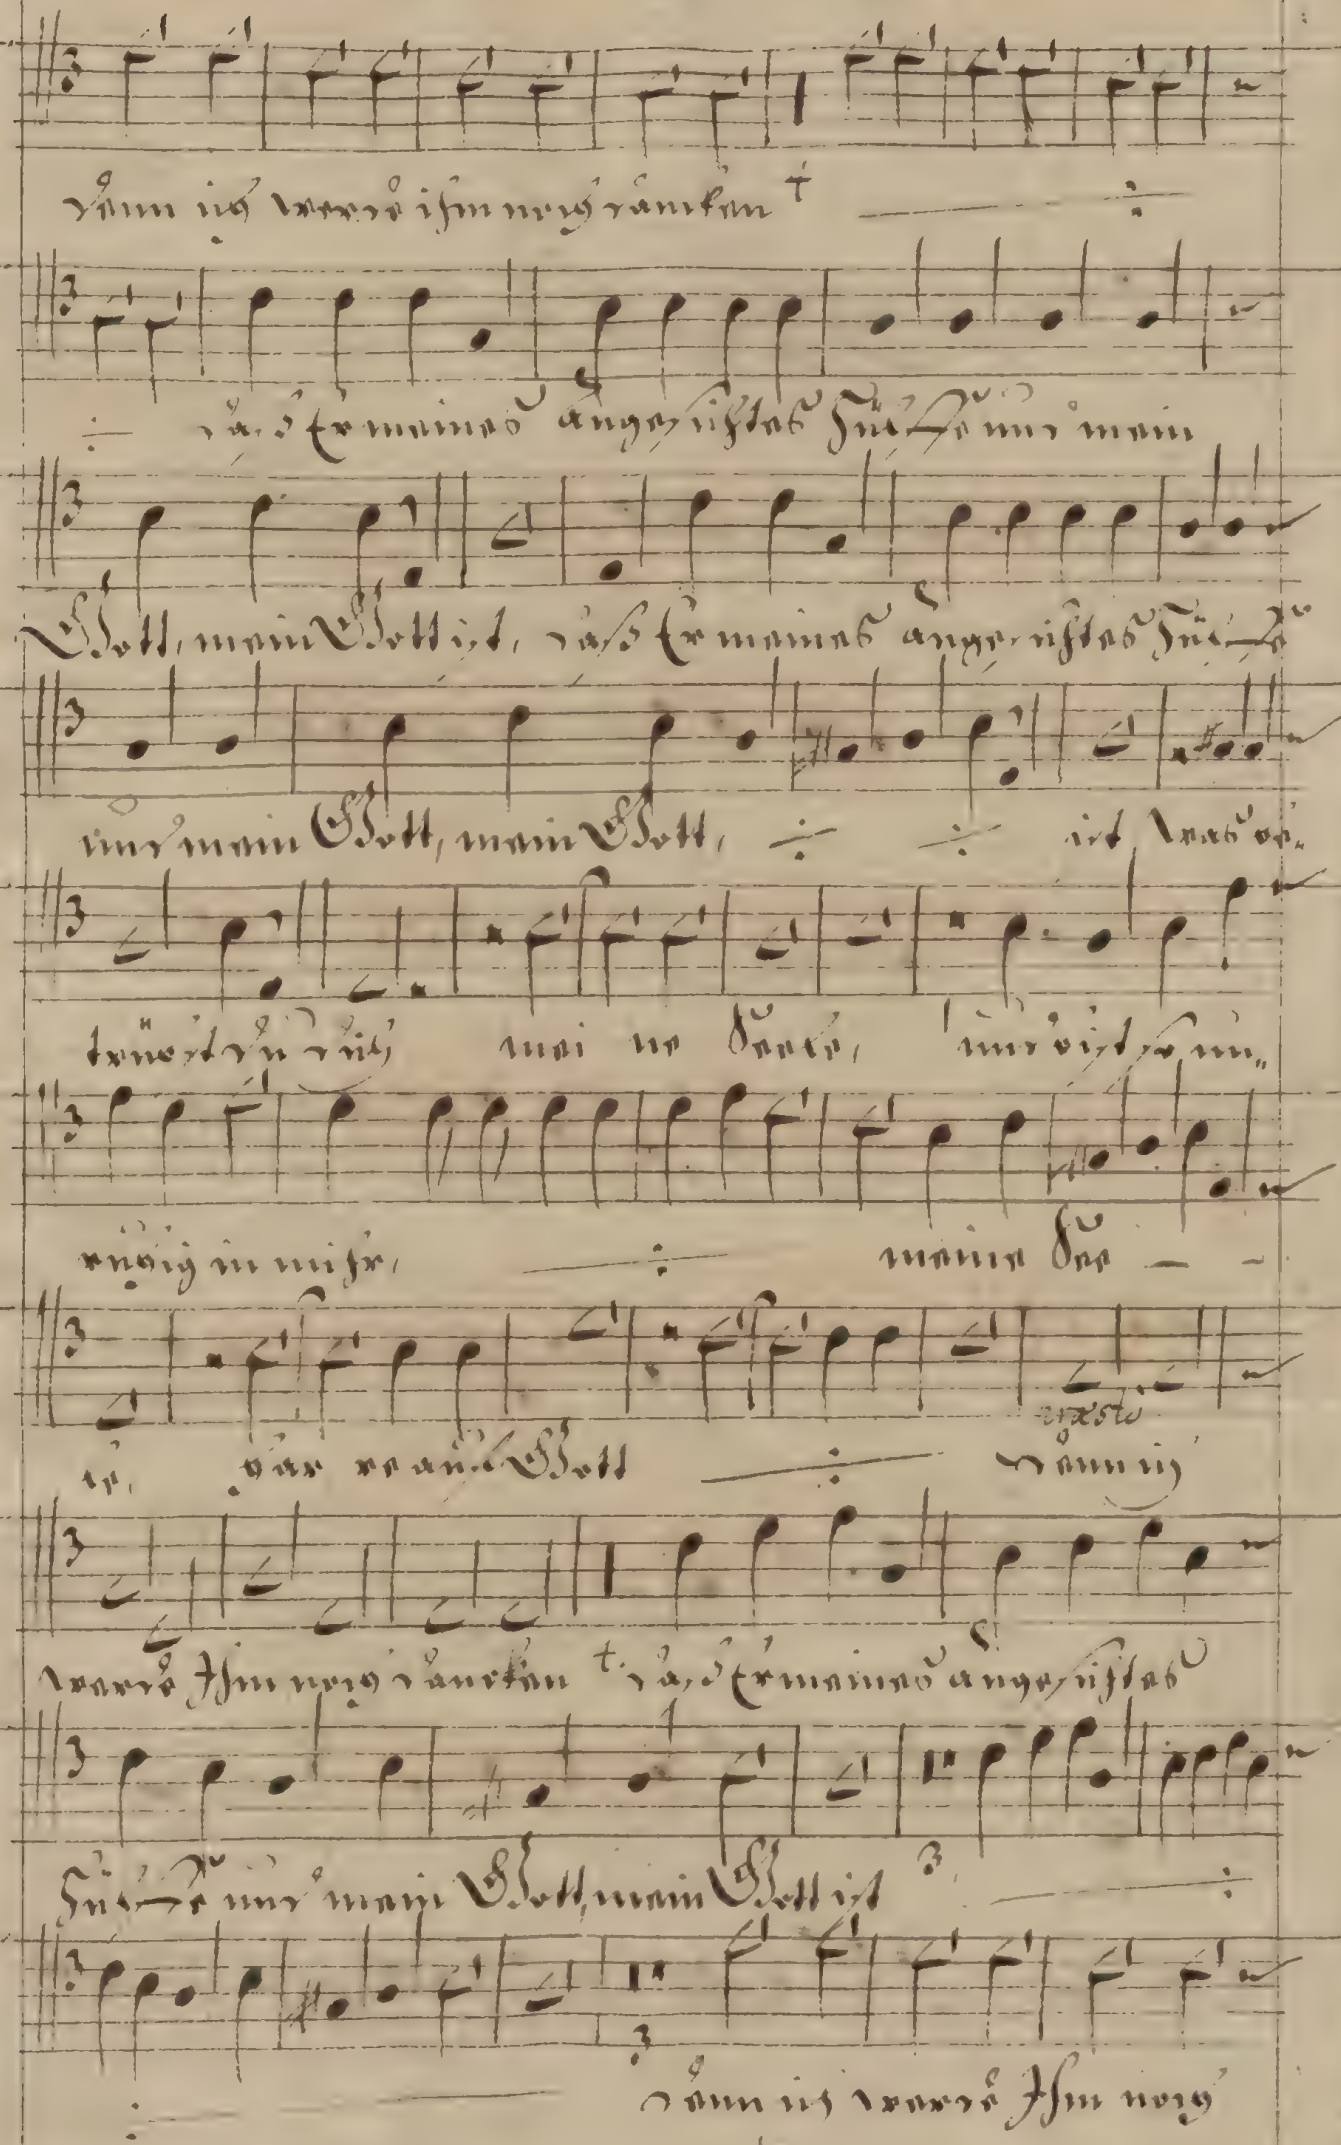 denn ich werde ihm noch dancken †
daß Er meines Angesichtes Hülffe und mein
Gott, mein Gott ist, daß Er meines Angesichtes Hülffe
und mein Gott, mein Gott, ist, was be-
trübst du dich meine Seele, und bist so un-
ruhig in mihr, meine See - -
le, harre auff Gott denn ich
werde Ihm noch dancken †. daß Er meines Angesichtes
Hülffe und mein Gott, mein Gott ist 3
3
denn ich werde Ihm noch